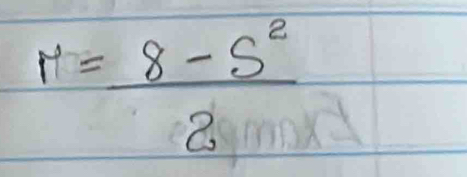 r = \frac{8 - S^2}{2}